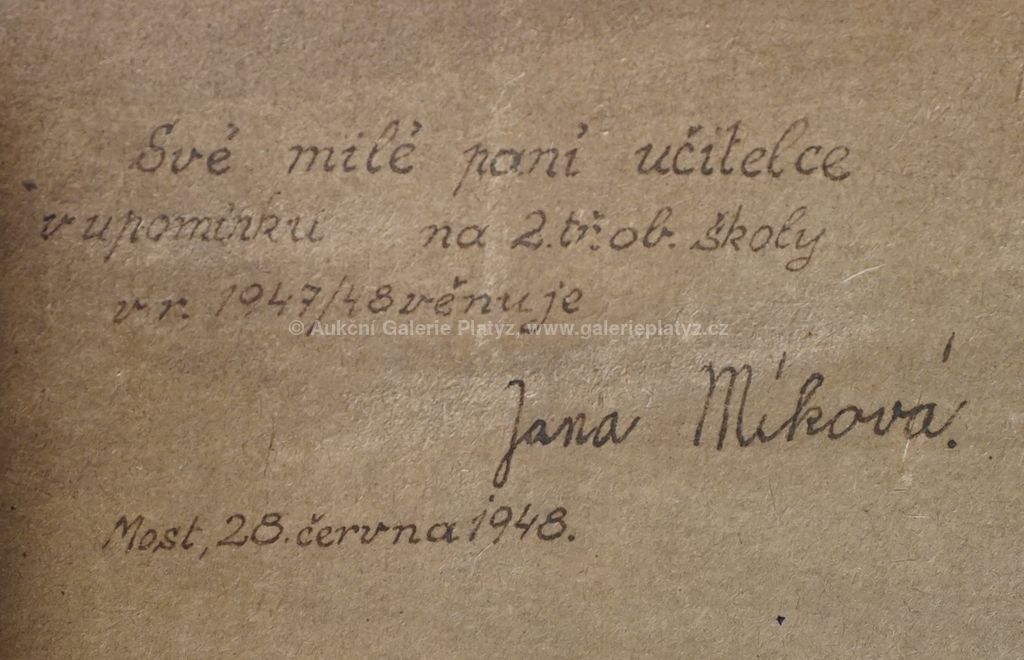 Své milé paní učitelce
v upomínku na 2. tř. ob. školy
v r. 1947/48 věnuje
© Aukcní Galerie Platyz, www.galerieplatyz.cz
Jana Míková.
Most, 28. června 1948.